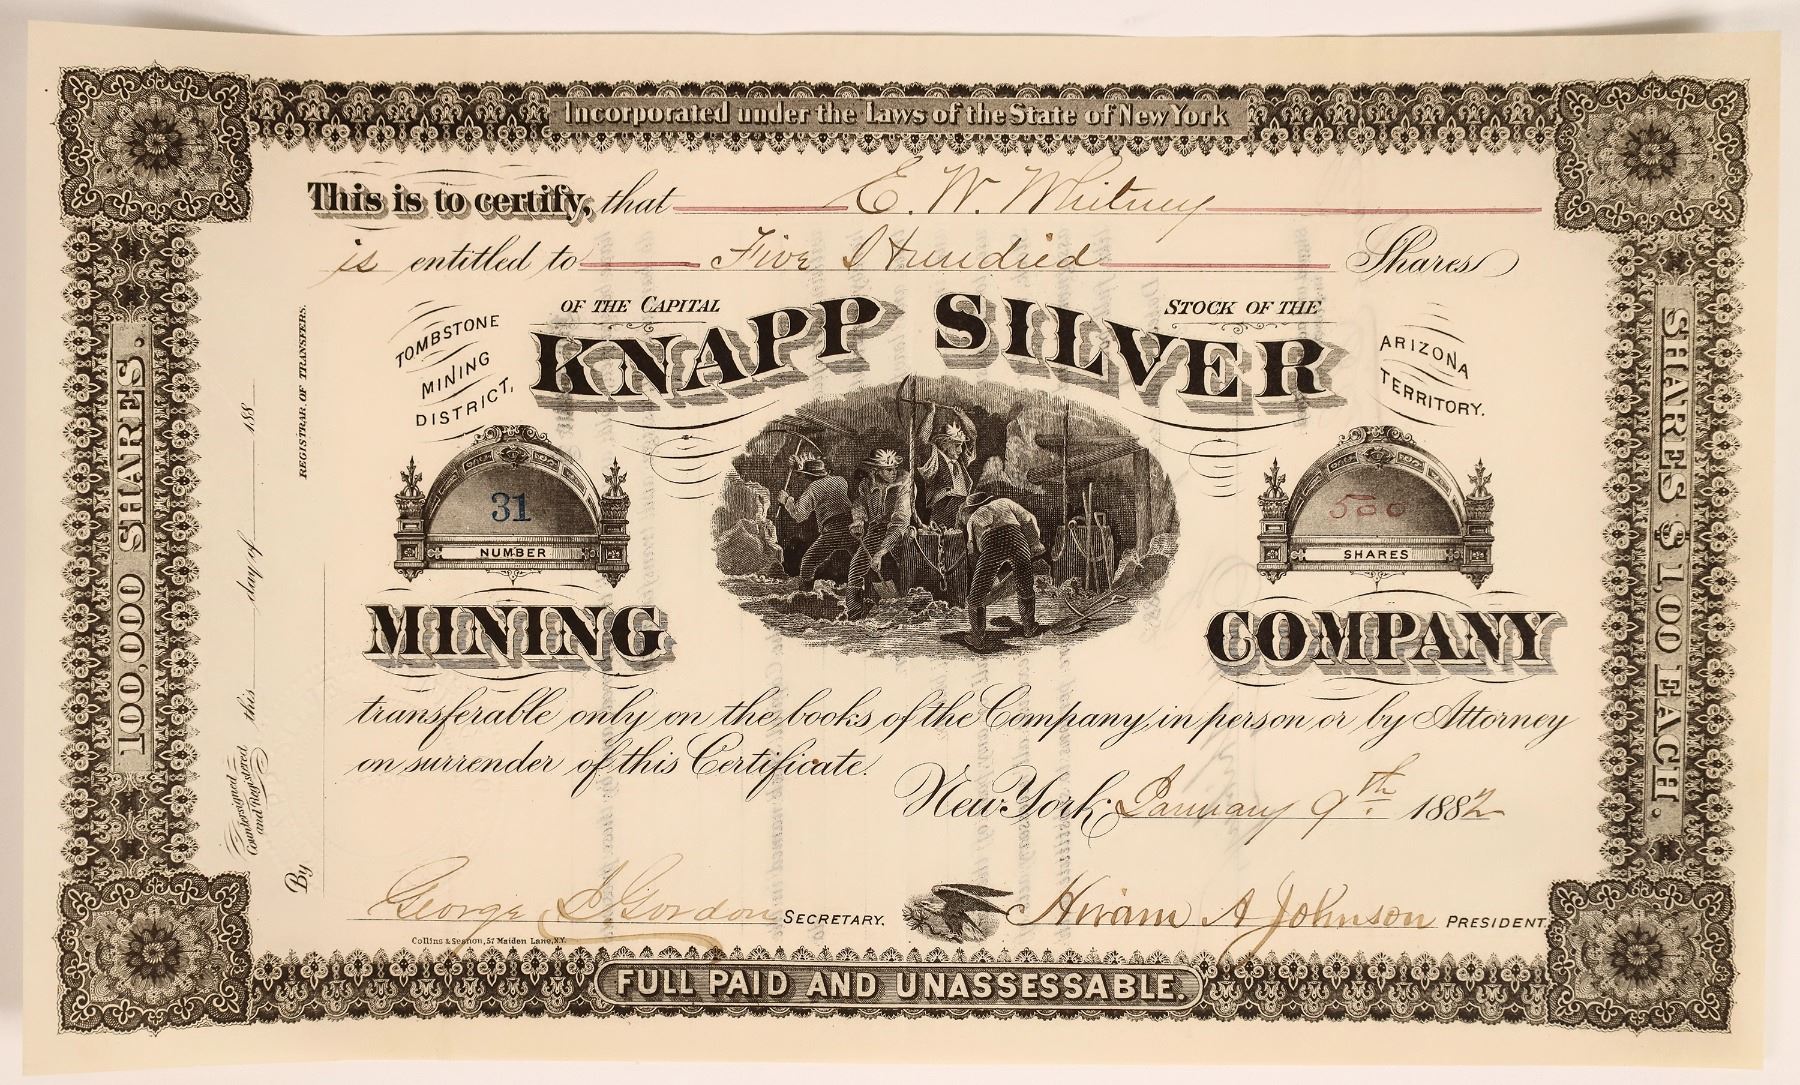 Incorporated under the Laws of the State of New York
This is to certify, that E. W. Whitney
is entitled to Five Hundred Shares
OF THE CAPITAL STOCK OF THE
KNAPP SILVER
TOMBSTONE
MINING
DISTRICT,
ARIZONA
TERRITORY.
31
NUMBER
500
SHARES
MINING COMPANY
transferable only on the books of the Company, in person or by Attorney
on surrender of this Certificate.
New York, January 9th. 1882
George S Gordon SECRETARY.
Hiram A Johnson PRESIDENT
Collins & Sesnon, 57 Maiden Lane, N.Y.
FULL PAID AND UNASSESSABLE.
100,000 SHARES.
SHARES $1,00 EACH.
Countersigned
and Registered this day of 188
By REGISTRAR OF TRANSFERS.